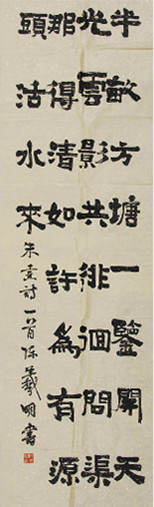 半畝方塘一鑒開天
光雲影共徘徊問渠
那得清如許為有源
頭活水來朱熹詩一首陈羲明書